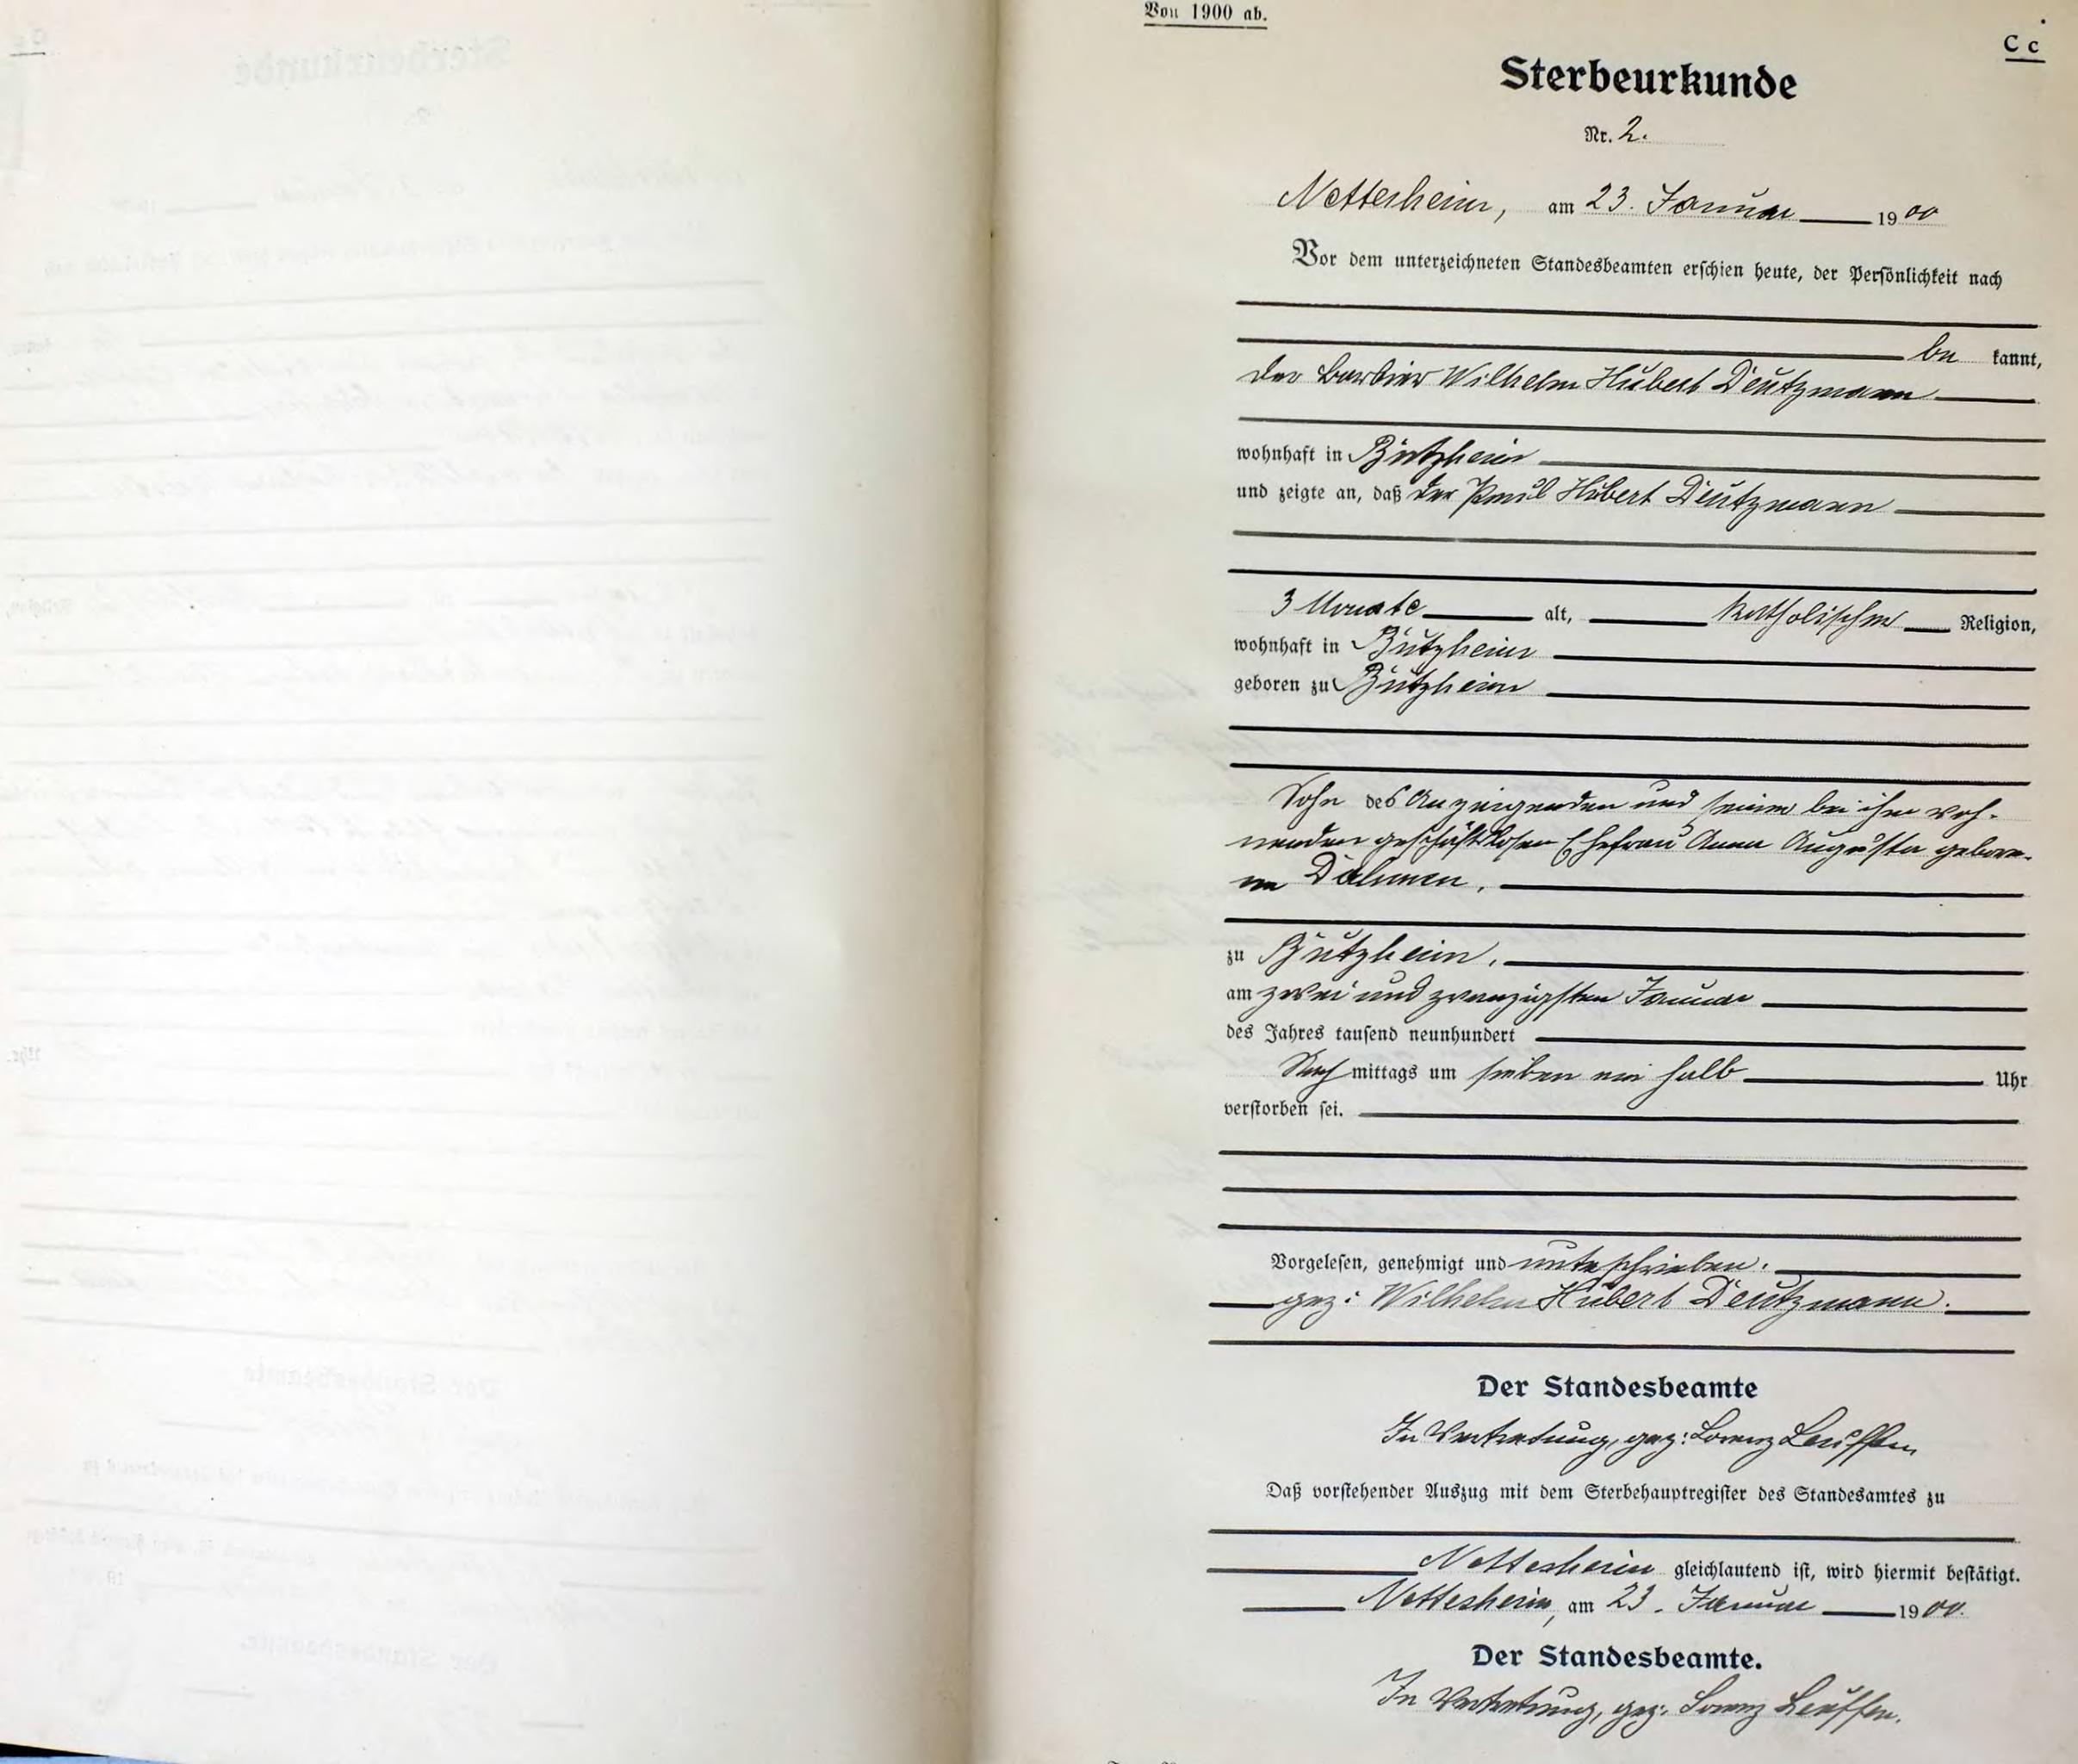 Von 1900 ab.
C c
Sterbeurkunde
Nr. 2.
Nettesheim, am 23. Januar 1900
Vor dem unterzeichneten Standesbeamten erschien heute, der Persönlichkeit nach
be kannt,
der Barbier Wilhelm Hubert Deutzmann
wohnhaft in Butzheim
und zeigte an, daß der Paul Hubert Deutzmann
3 Monate alt, katholischer Religion,
wohnhaft in Butzheim
geboren zu Butzheim
Sohn des Anzeigenden und seiner bei ihm woh-
nenden geschäftslosen Ehefrau Anna Augusta gebore-
ne Dahmen,
zu Butzheim,
am zwei und zwanzigsten Januar
des Jahres tausend neunhundert
Nach mittags um sieben ein halb Uhr
verstorben sei.
Vorgelesen, genehmigt und unterschrieben.
gez: Wilhelm Hubert Deutzmann.
Der Standesbeamte
In Vertretung, gez: Lorenz Leuffen
Daß vorstehender Auszug mit dem Sterbehauptregister des Standesamtes zu
Nettesheim gleichlautend ist, wird hiermit bestätigt.
Nettesheim, am 23. Januar 1900.
Der Standesbeamte.
In Vertretung, gez: Lorenz Leuffen.